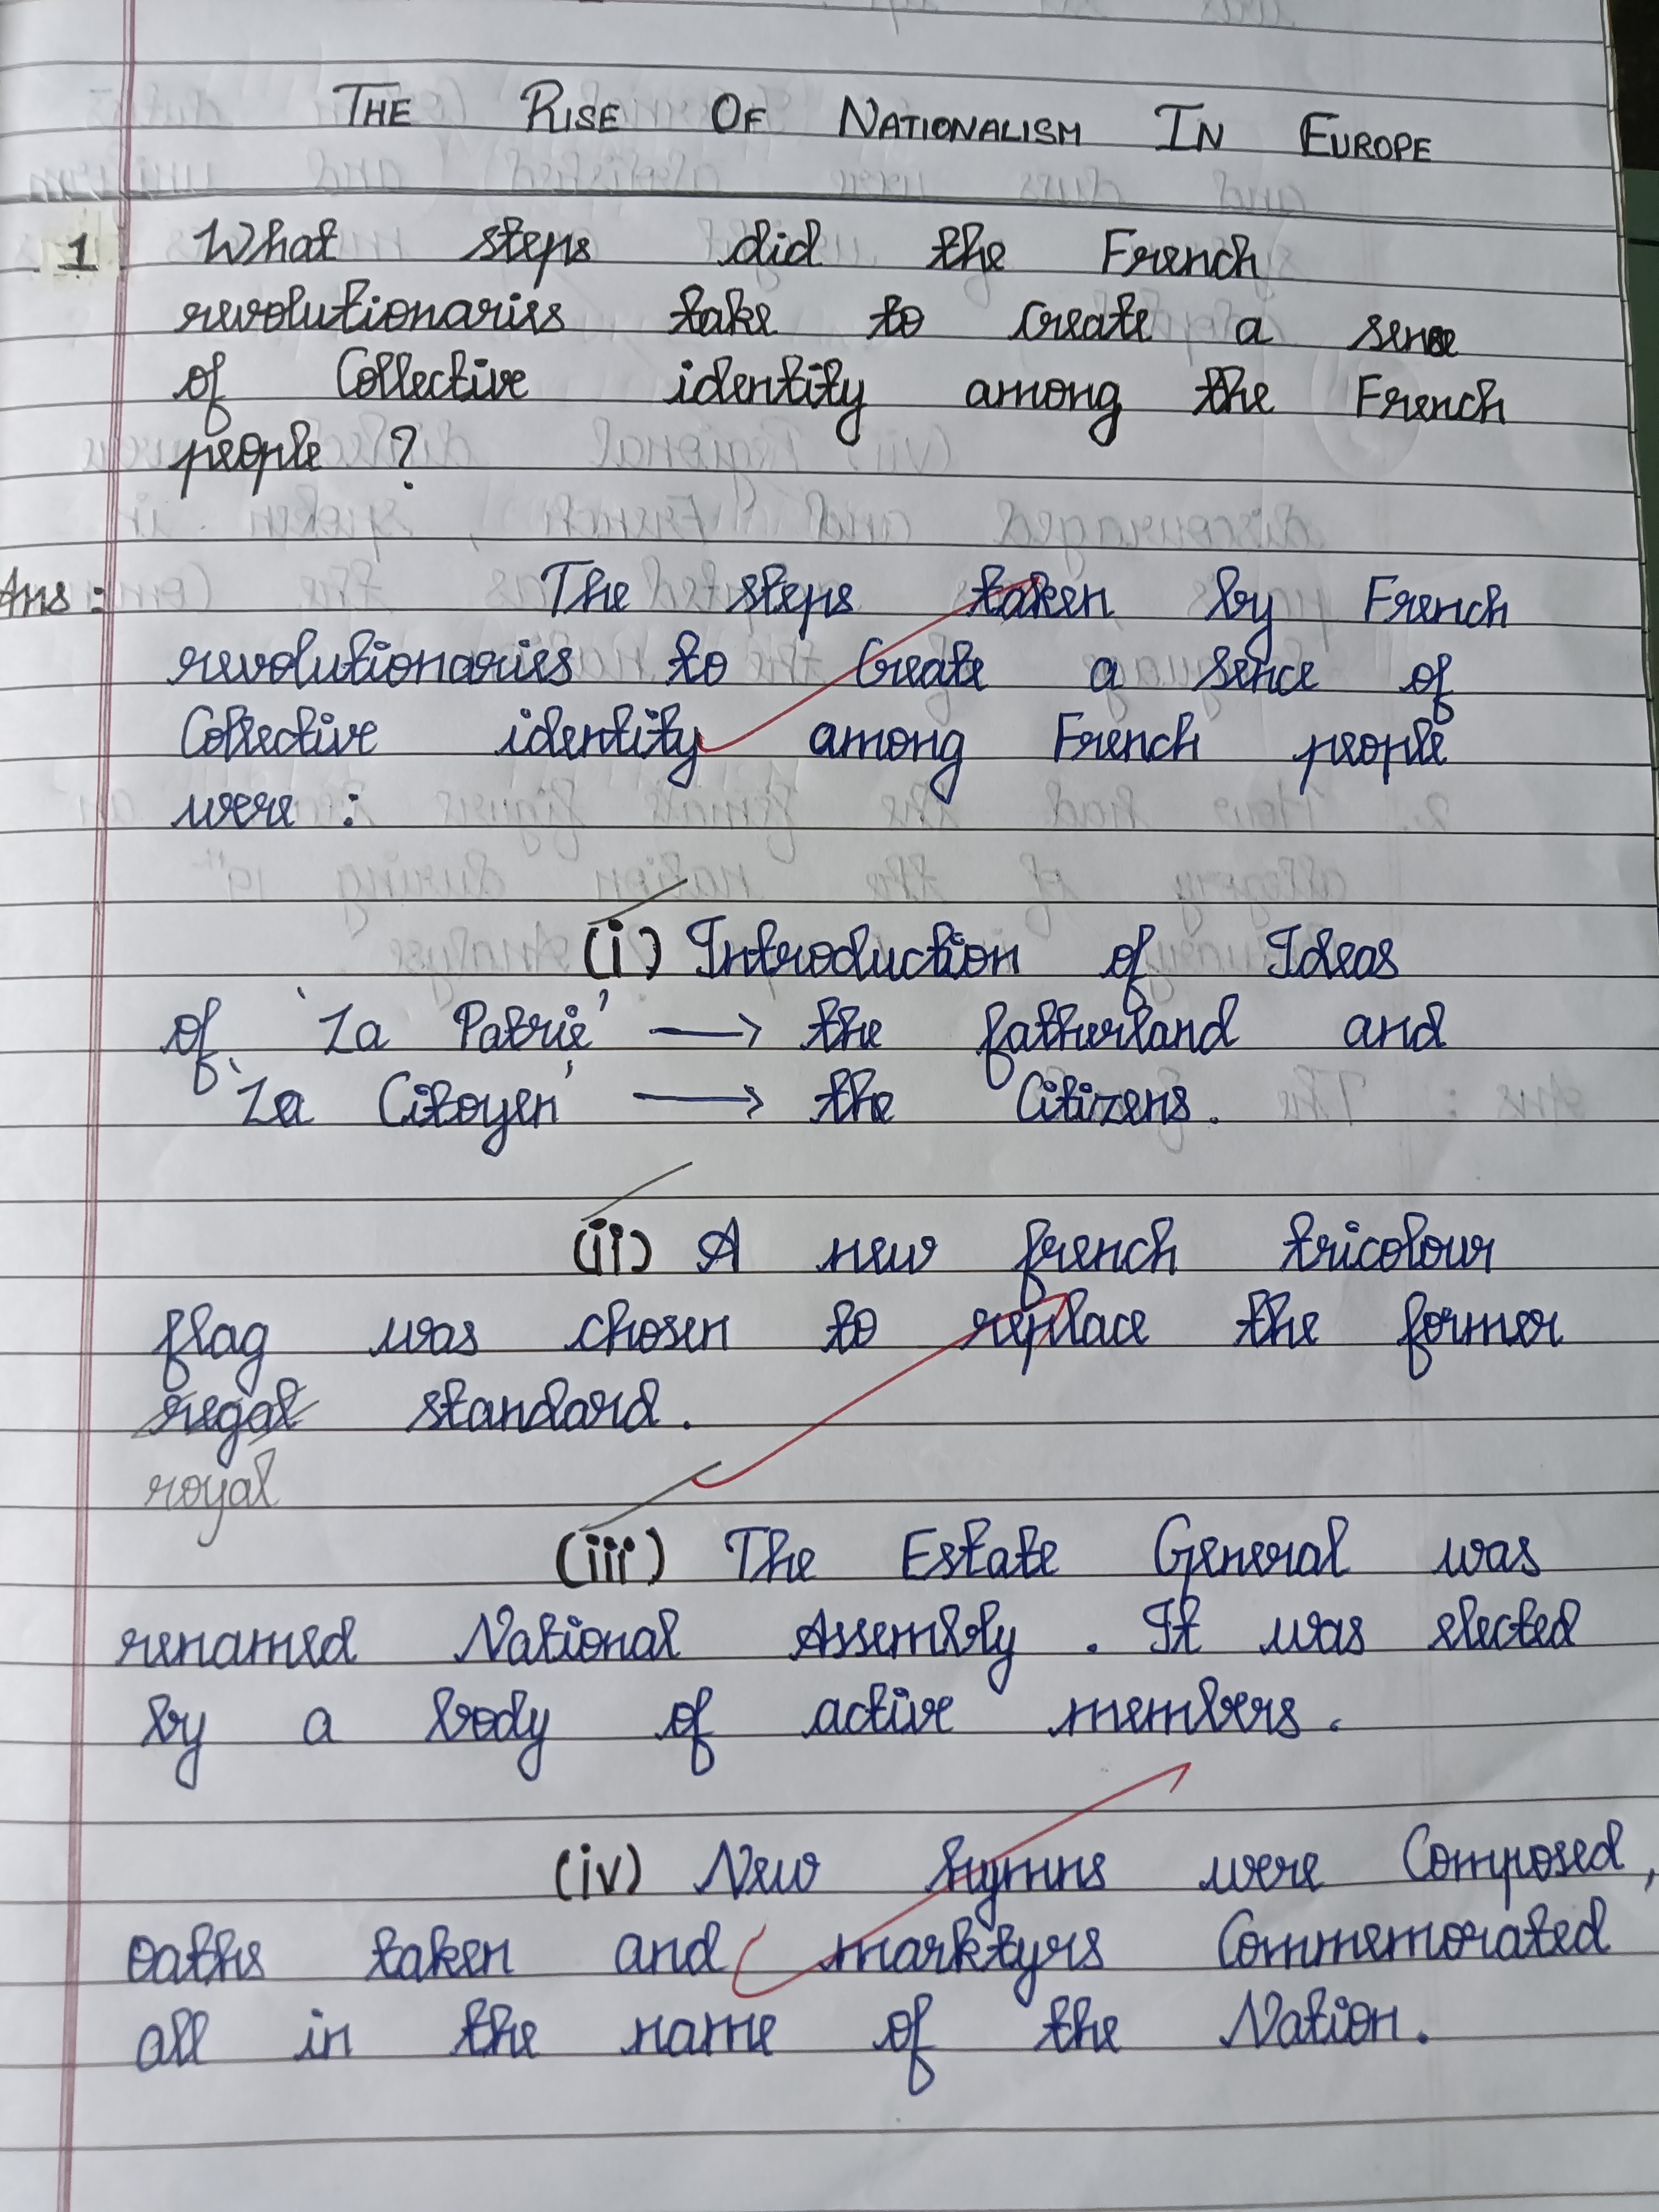 THE RISE OF NATIONALISM IN EUROPE
1 What steps did the French
revolutionaries take to create a sense
of Collective identity among the French
people ?
Ans : The steps taken by French
revolutionaries to Create a sence of
Collective identity among French people
were :
(i) Introduction of Ideas
of 'La Patrie' → the fatherland and
'La Citoyen' → the Citizens.
(ii) A new french tricolour
flag was chosen to replace the former
regal standard.
royal
(iii) The Estate General was
renamed National Assembly. It was elected
by a body of active members.
(iv) New hymns were Composed,
oaths taken and marktyrs Commemorated
all in the name of the Nation.